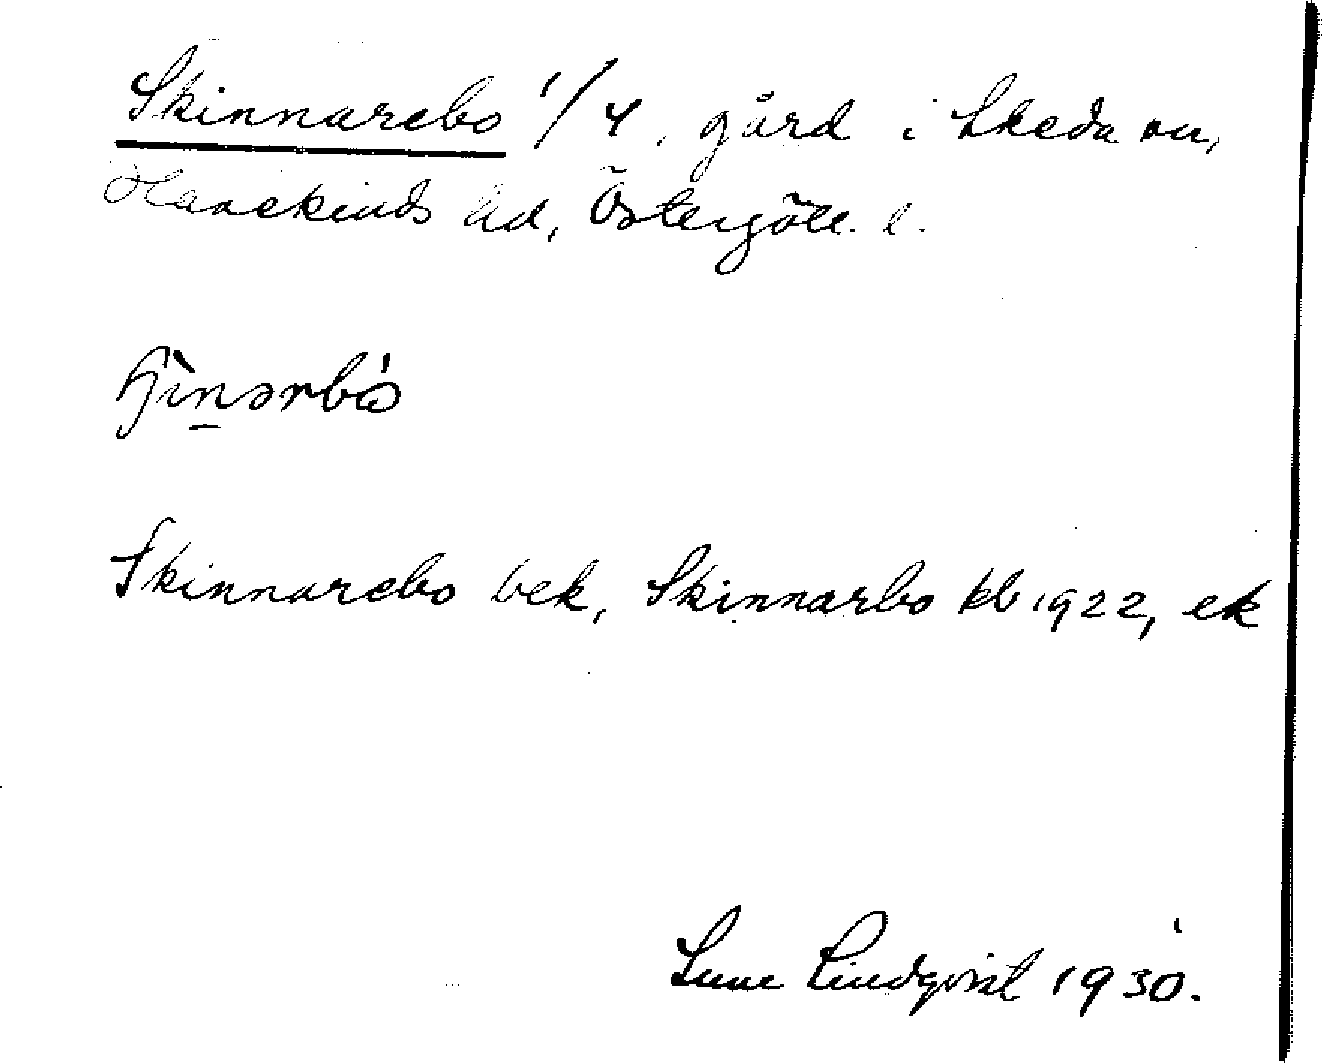 Skinnarebo 1/4, gård i Skeda sn,
Hanekinds hd, Östergötl. l.
Skinnarebo bek, Skinnarbo kb 1922, ek
Sune Lindqvist 1930.